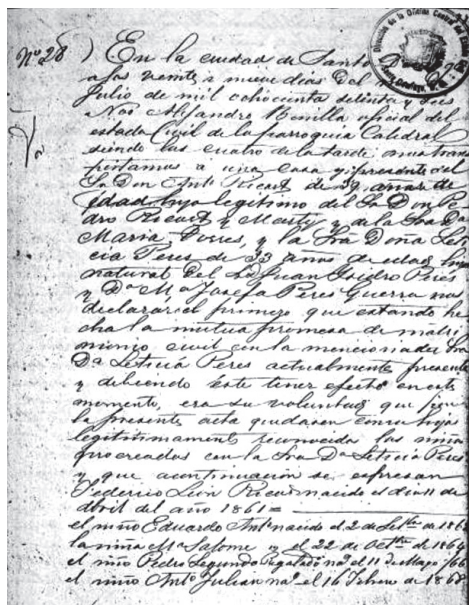 Nº 28 ) En la ciudad de Santo Domingo
a los veinte y nueve dias del mes de
Julio de mil ochocientos setenta y seis
Nos Alejandro Bonilla oficial del
estado Civil de la parroquia Catedral
siendo las cuatro de la tarde nos trans
portamos a una casa y presente el
Sr Don Antº Ricart de 39 anos de
edad hijo legitimo del Sr Don Pe
dro Ricart y Marty y de la Sra Dª
Maria Torres, y la Srá Doña Leti
cia Peres de 33 años de edad hija
natural del Sr Juan Isidro Peres
y Dª Mª Josefa Peres Guerra nos
declaró el primero que estando he
cha la mutua promesa de matri
monio civil con la mencionada Sra
Dª Leticia Peres actualmente presente
y debiendo este tener efecto en este
momento, era su voluntad que por
la presente acta quedaran como hijos
legitimamente reconocidos los niños
procreados con la Sra Dª Leticia Peres
y que acontinuación se expresan
Federico León Ricart nacido el dia 11 de
Abril del año 1861=
el niño Eduardo Antº nacido el 2 de Setbre de 186
la niña Mª Salome y el 22 de Octbre de 186
el niño Pedro Segundo Regalado na. el 11 de Mayo /66
el niño Antº Julian na. el 16 Febrero de 1868